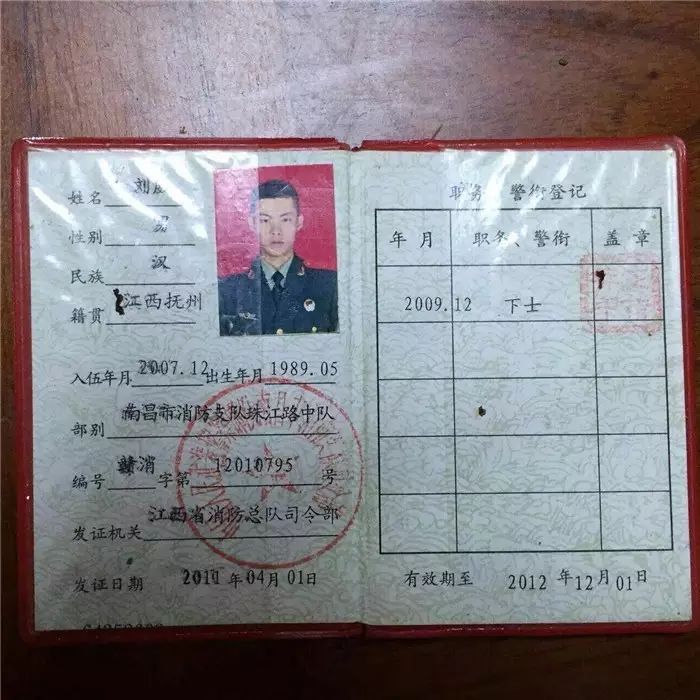 姓名 刘
性别 男
民族 汉
籍贯 江西抚州
入伍年月 2007.12 出生年月 1989.05
部别 南昌市消防支队珠江路中队
编号 赣消 字第 12010795 号
发证机关 江西省消防总队司令部
发证日期 2011 年 04 月 01 日
职务 警衔登记
年 月 职务、警衔 盖 章
2009.12 下士
有效期至 2012 年 12 月 01 日